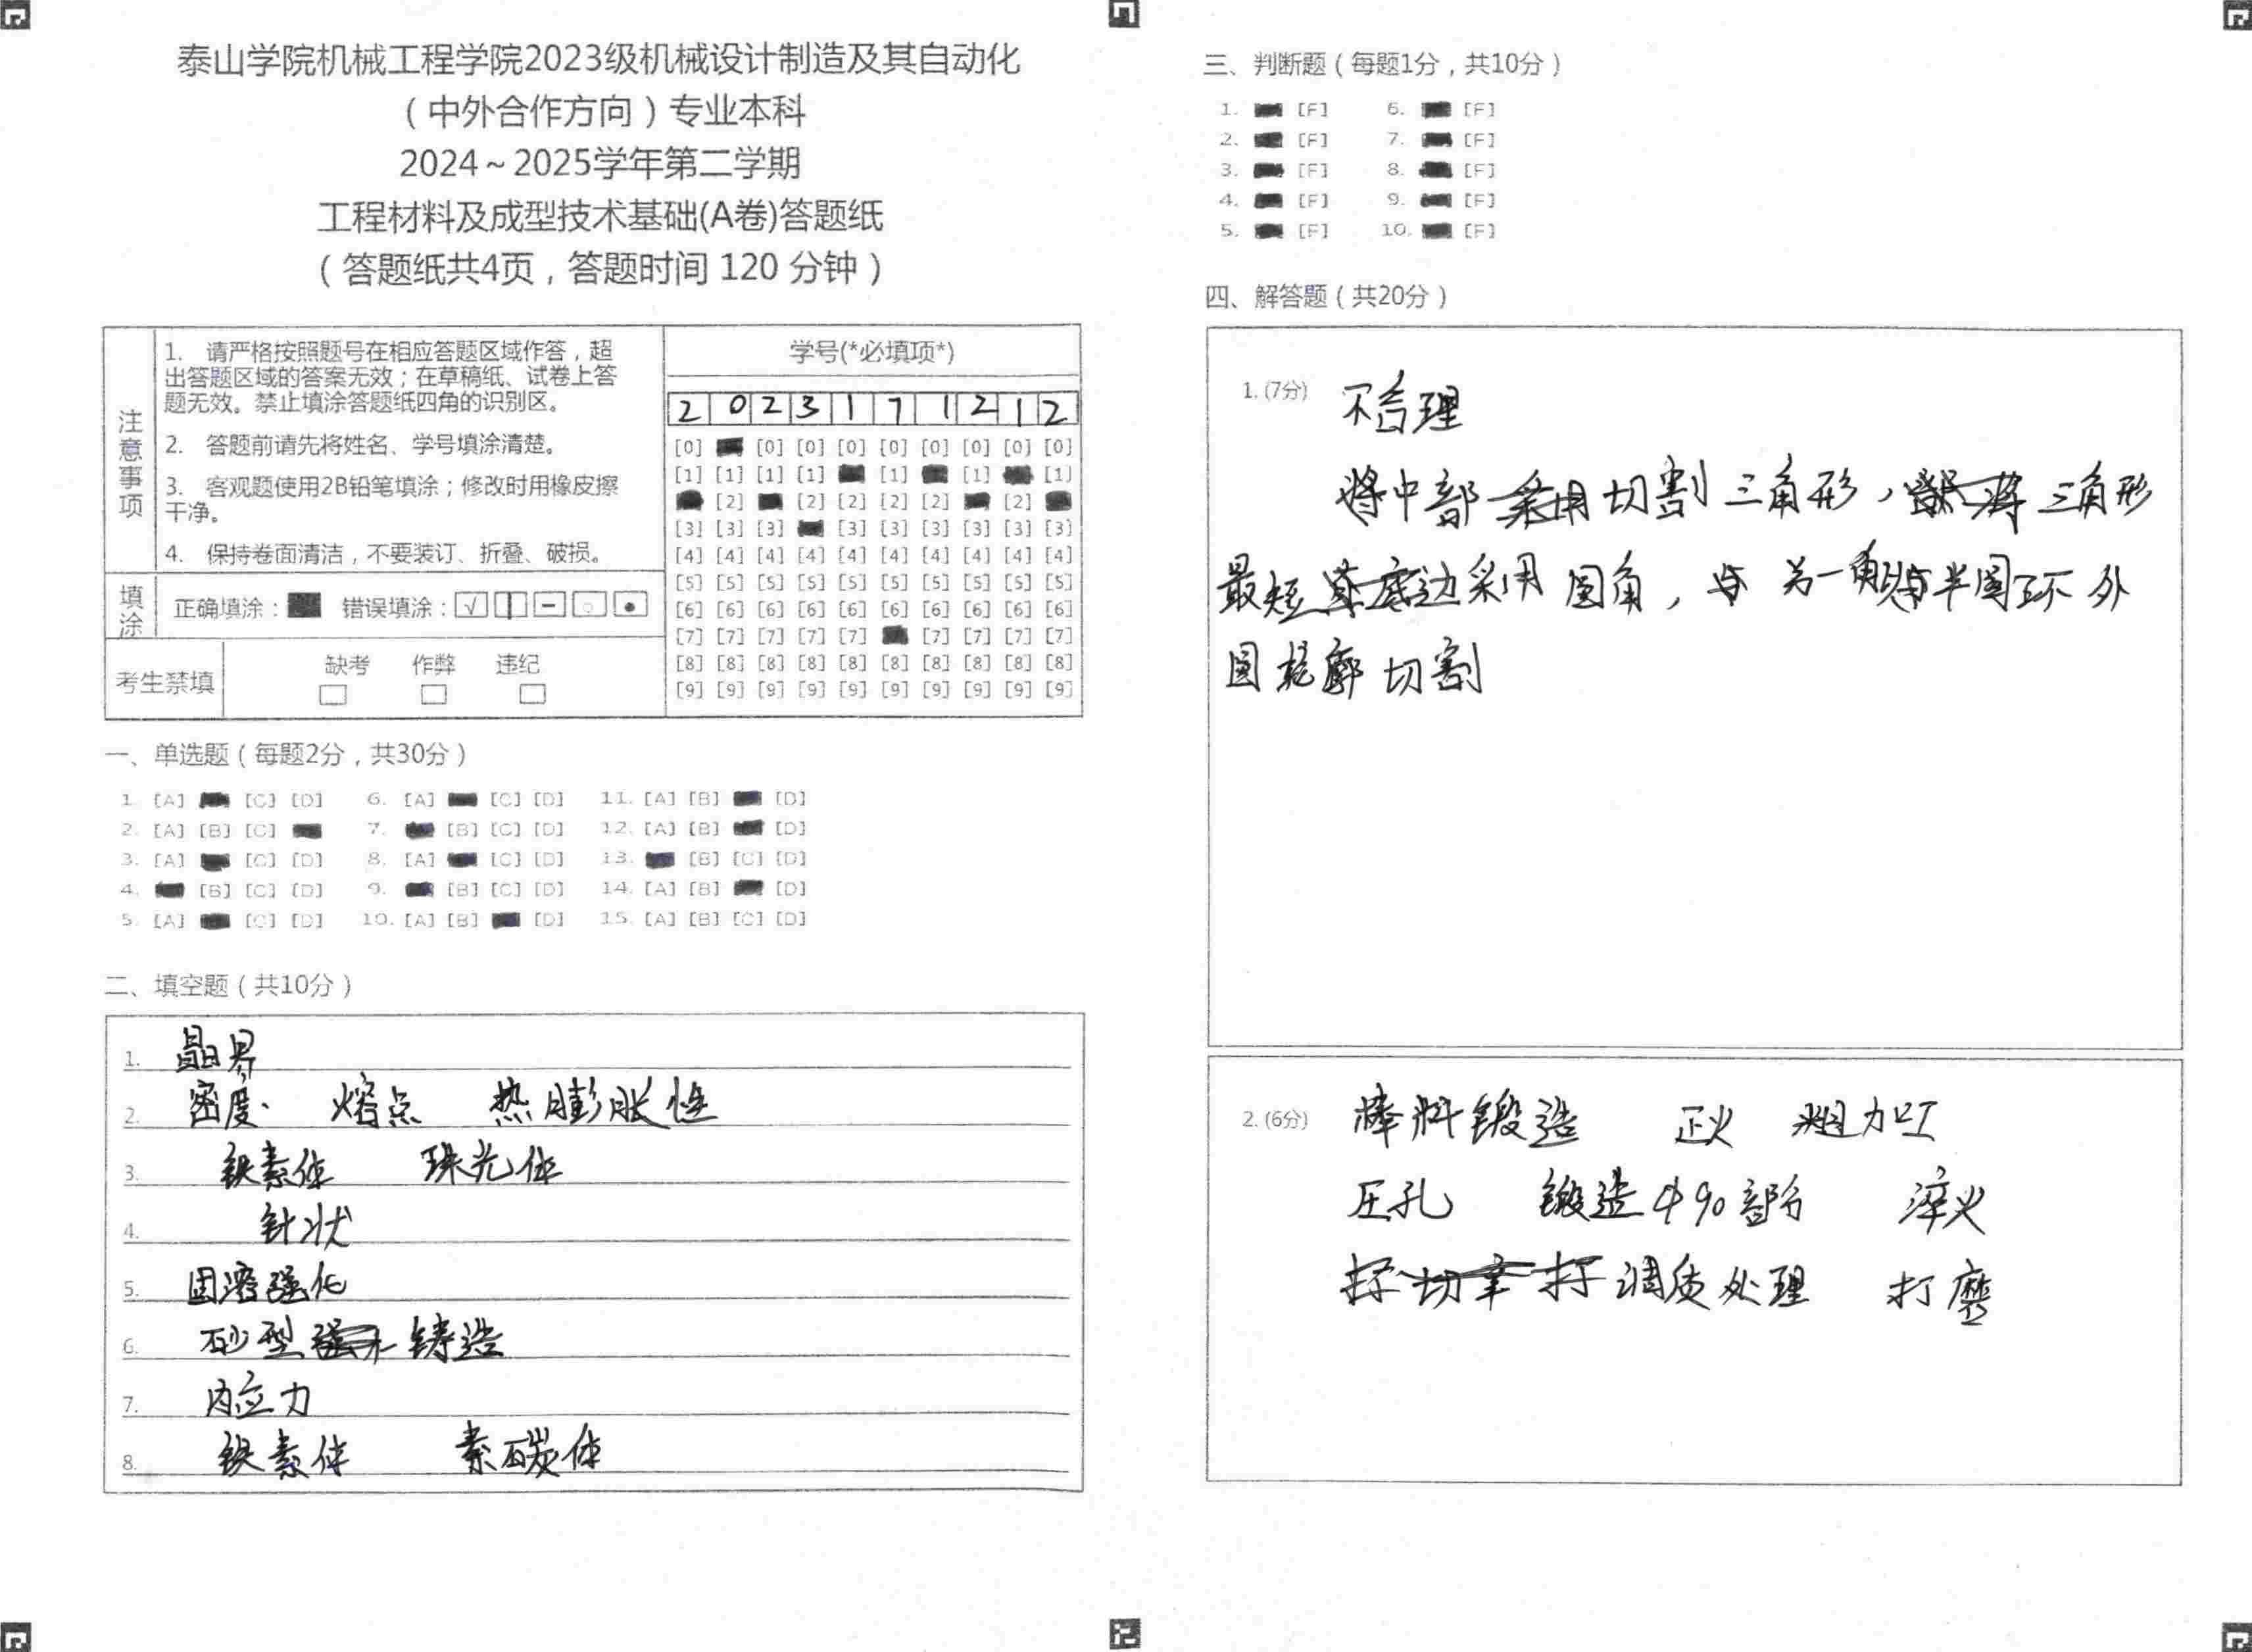 泰山学院机械工程学院2023级机械设计制造及其自动化
（中外合作方向）专业本科
2024～2025学年第二学期
工程材料及成型技术基础(A卷)答题纸
（答题纸共4页，答题时间 120 分钟）
注意事项
1. 请严格按照题号在相应答题区域作答，超
出答题区域的答案无效；在草稿纸、试卷上答
题无效。禁止填涂答题纸四角的识别区。
2. 答题前请先将姓名、学号填涂清楚。
3. 客观题使用2B铅笔填涂；修改时用橡皮擦
干净。
4. 保持卷面清洁，不要装订、折叠、破损。
填涂
正确填涂： 错误填涂：
考生禁填
缺考 作弊 违纪
学号(*必填项*)
2 0 2 3 1 7 1 2 1 2
[0] [0] [0] [0] [0] [0] [0] [0] [0]
[1] [1] [1] [1] [1] [1] [1]
[2] [2] [2] [2] [2] [2]
[3] [3] [3] [3] [3] [3] [3] [3] [3]
[4] [4] [4] [4] [4] [4] [4] [4] [4] [4]
[5] [5] [5] [5] [5] [5] [5] [5] [5] [5]
[6] [6] [6] [6] [6] [6] [6] [6] [6] [6]
[7] [7] [7] [7] [7] [7] [7] [7] [7]
[8] [8] [8] [8] [8] [8] [8] [8] [8] [8]
[9] [9] [9] [9] [9] [9] [9] [9] [9] [9]
一、单选题（每题2分，共30分）
1. [A] [C] [D] 6. [A] [C] [D] 11. [A] [B] [D]
2. [A] [B] [C] 7. [B] [C] [D] 12. [A] [B] [D]
3. [A] [C] [D] 8. [A] [C] [D] 13. [B] [C] [D]
4. [B] [C] [D] 9. [B] [C] [D] 14. [A] [B] [D]
5. [A] [C] [D] 10. [A] [B] [D] 15. [A] [B] [C] [D]
二、填空题（共10分）
1. 晶界
2. 密度. 熔点 热膨胀性
3. 铁素体 珠光体
4. 针状
5. 固溶强化
6. 砂型铸造
7. 内应力
8. 铁素体 素碳体
三、判断题（每题1分，共10分）
1. [F] 6. [F]
2. [F] 7. [F]
3. [F] 8. [F]
4. [F] 9. [F]
5. [F] 10. [F]
四、解答题（共20分）
1. (7分) 不合理
将中部切割三角形，三角形
最短边采用圆角，另一角与半圆环外
圆轮廓切割
2. (6分) 棒料锻造 正火 粗加工
压孔 锻造中90部分 淬火
调质处理 打磨